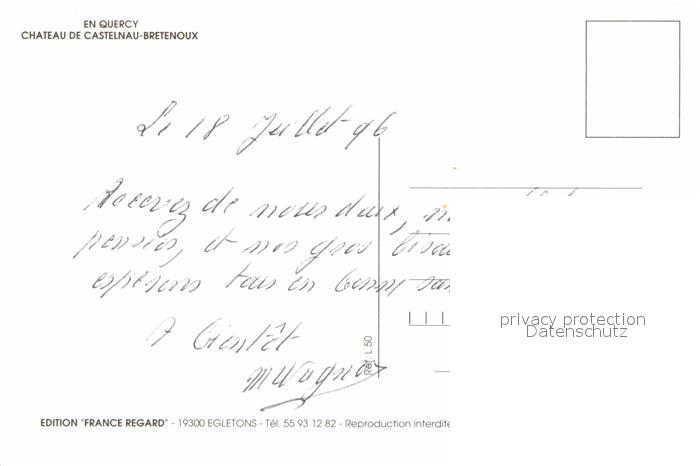 EN QUERCY
CHATEAU DE CASTELNAU-BRETENOUX
Le 18 Juillet 96
Recevez de nous deux,
pensées, et nos gros bisou
espérons tous en bonne san
A bientôt
MWagner
Réf. L 50
privacy protection
Datenschutz
EDITION "FRANCE REGARD" - 19300 EGLETONS - Tél. 55 93 12 82 - Reproduction interdite